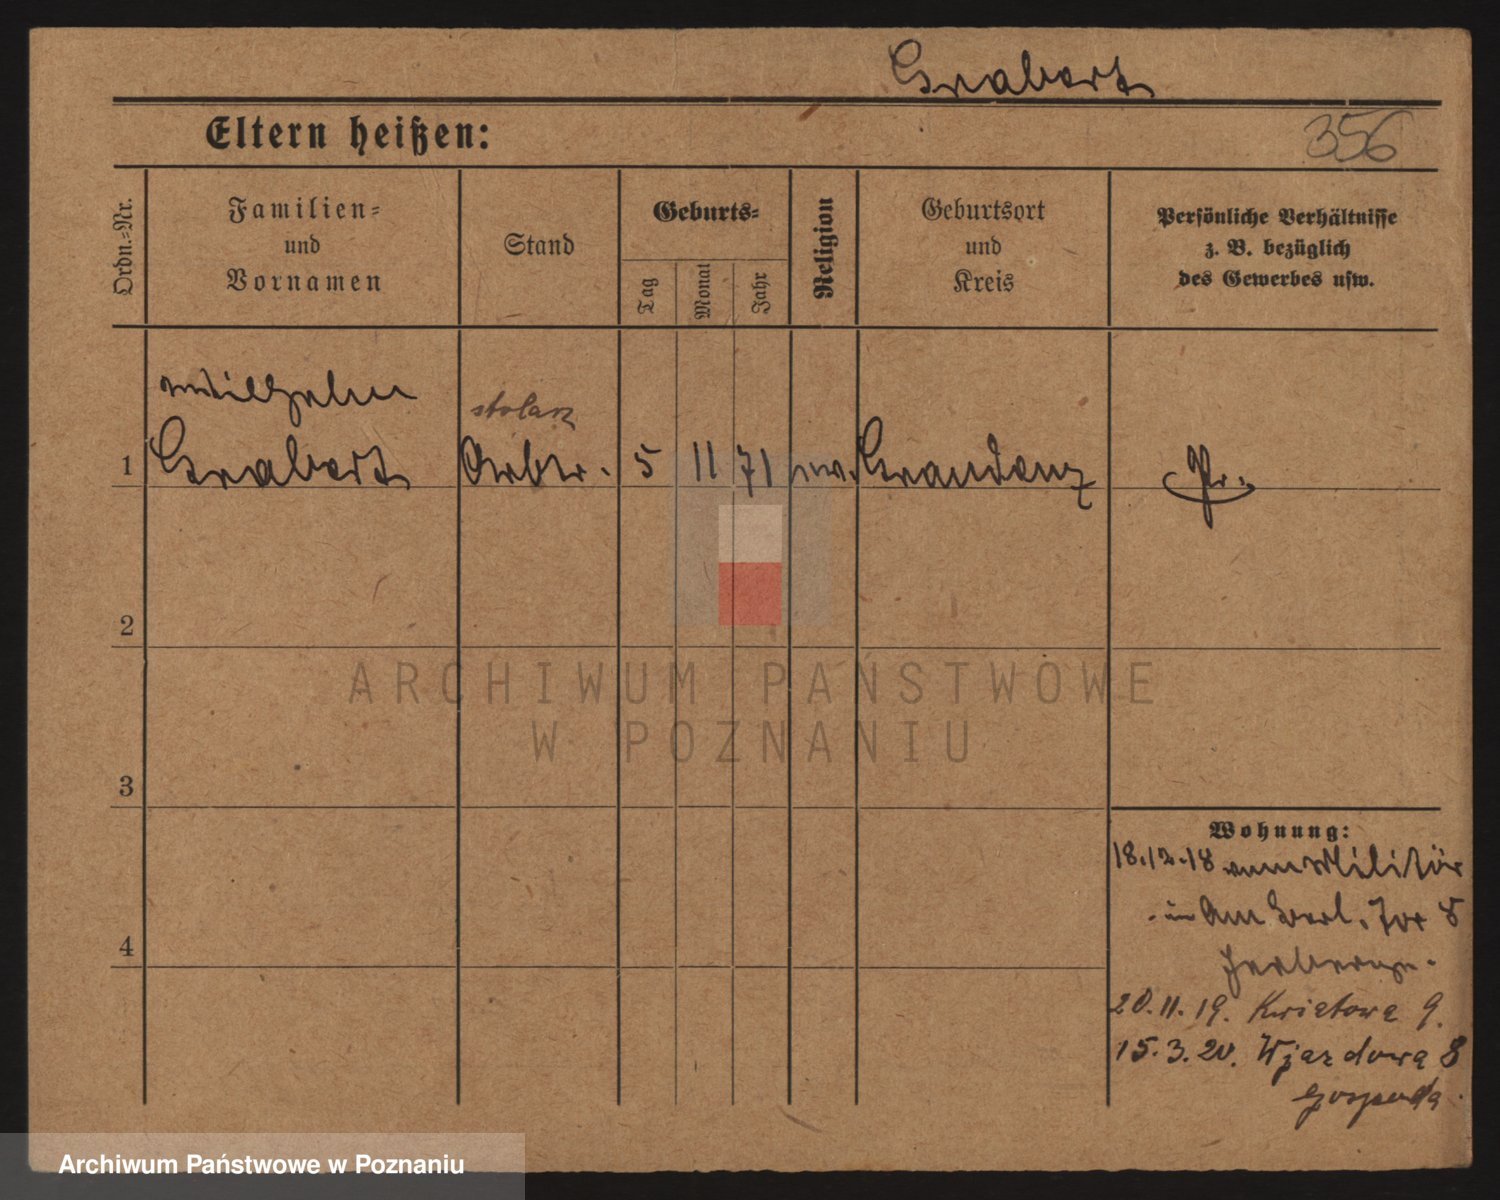 Grabert
Eltern heißen:
356
Ordn.-Nr.
Familien-
und
Vornamen
Stand
Geburts-
Tag
Monat
Jahr
Religion
Geburtsort
und
Kreis
Persönliche Verhältnisse
z. B. bezüglich
des Gewerbes usw.
Wilhelm
stolarz
1 Grabert Arbtr. 5 11 71 ew. Graudenz Pr.
2
3
4
Wohnung:
18.12.18 vom Militär
in Am Berl. Tor 8
Herberge.
20.11.19. Kwiatowa 9.
15.3.20. Wjazdowa 8
Gospoda.
ARCHIWUM PAŃSTWOWE
W POZNANIU
Archiwum Państwowe w Poznaniu